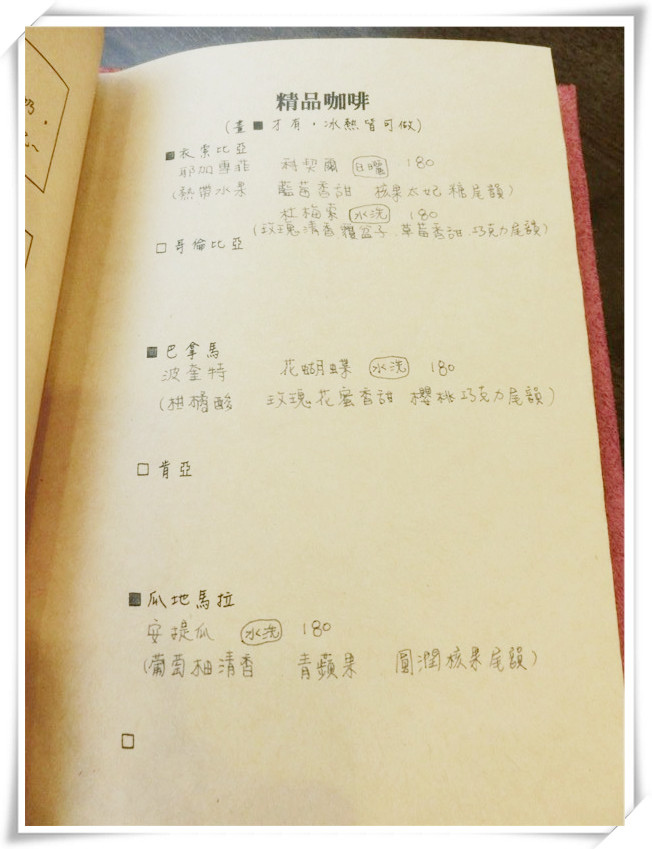 精品咖啡
(畫■才有，冰熱皆可做)
■衣索比亞
耶加雪菲 科契爾 日曬 180
(熱帶水果 藍莓香甜 核果太妃糖尾韻)
杜梅索 水洗 180
(玫瑰清香 覆盆子.草莓香甜.巧克力尾韻)
□哥倫比亞
■巴拿馬
波奎特 花蝴蝶 水洗 180
(柑橘酸 玫瑰花蜜香甜 櫻桃巧克力尾韻)
□肯亞
■瓜地馬拉
安提瓜 水洗 180
(葡萄柚清香 青蘋果 圓潤核果尾韻)
□